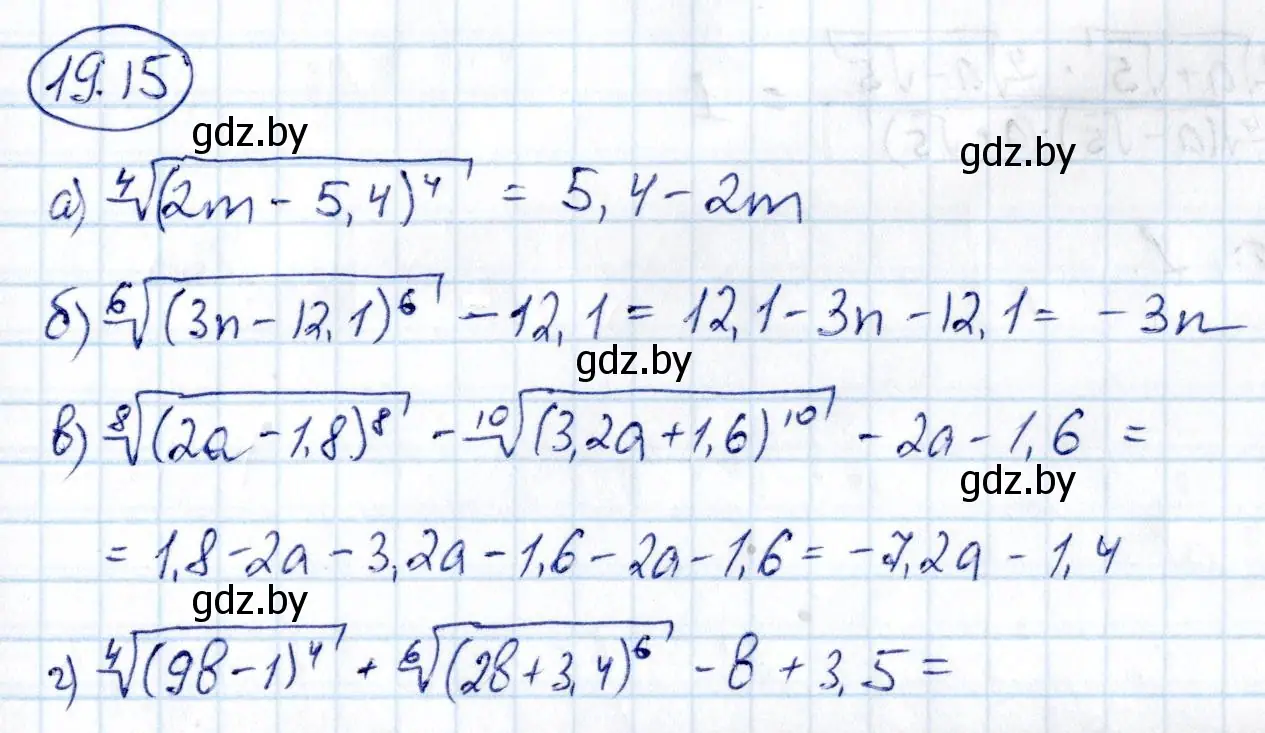 19.15
gdz.by
gdz.by
а) ⁴√(2m - 5,4)⁴ = 5,4 - 2m
б) ⁶√(3n - 12,1)⁶ - 12,1 = 12,1 - 3n - 12,1 = - 3n
gdz.by
в) ⁸√(2a - 1,8)⁸ - ¹⁰√(3,2a + 1,6)¹⁰ - 2a - 1,6 =
gdz.by
= 1,8 - 2a - 3,2a - 1,6 - 2a - 1,6 = - 7,2a - 1,4
gdz.by
г) ⁴√(9b - 1)⁴ + ⁶√(2b + 3,4)⁶ - b + 3,5 =